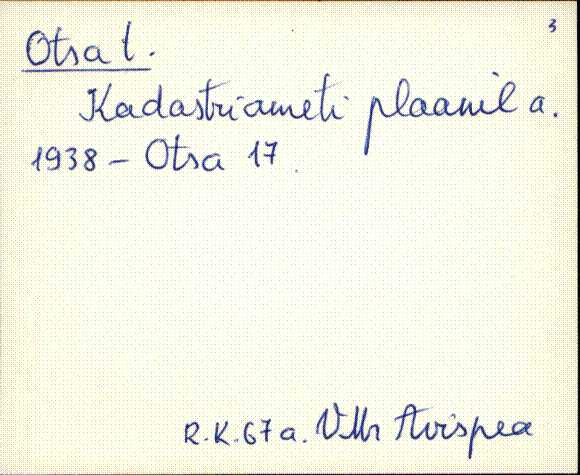 3
Otsa t.
Kadastriameti plaanil a.
1938 – Otsa 17.
R.K. 67 a. VMr Avispea